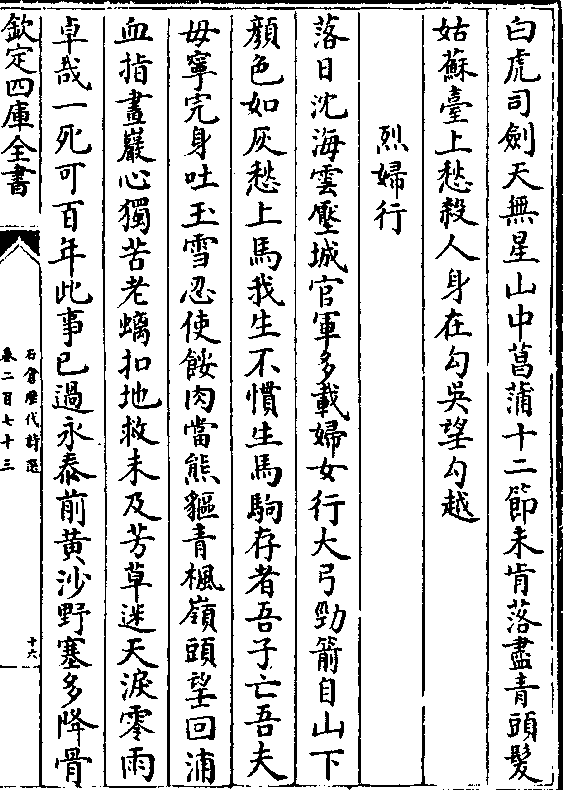 白虎司劍天無星山中菖蒲十二節未肯落盡青頭髮
姑蘇臺上愁殺人身在勾吳望勾越
烈婦行
落日沈海雲壓城官軍多載婦女行大弓勁箭自山下
顔色如灰愁上馬我生不慣生馬駒存者吾子亡吾夫
毋寧完身吐玉雪忍使餒肉當熊貙青楓嶺頭望回浦
血指畫巖心獨苦老螭扣地救未及芳草迷天淚零雨
卓哉一死可百年此事已過永泰前黄沙野塞多降骨
欽定四庫全書
石倉歷代詩選
卷二百七十三
十六